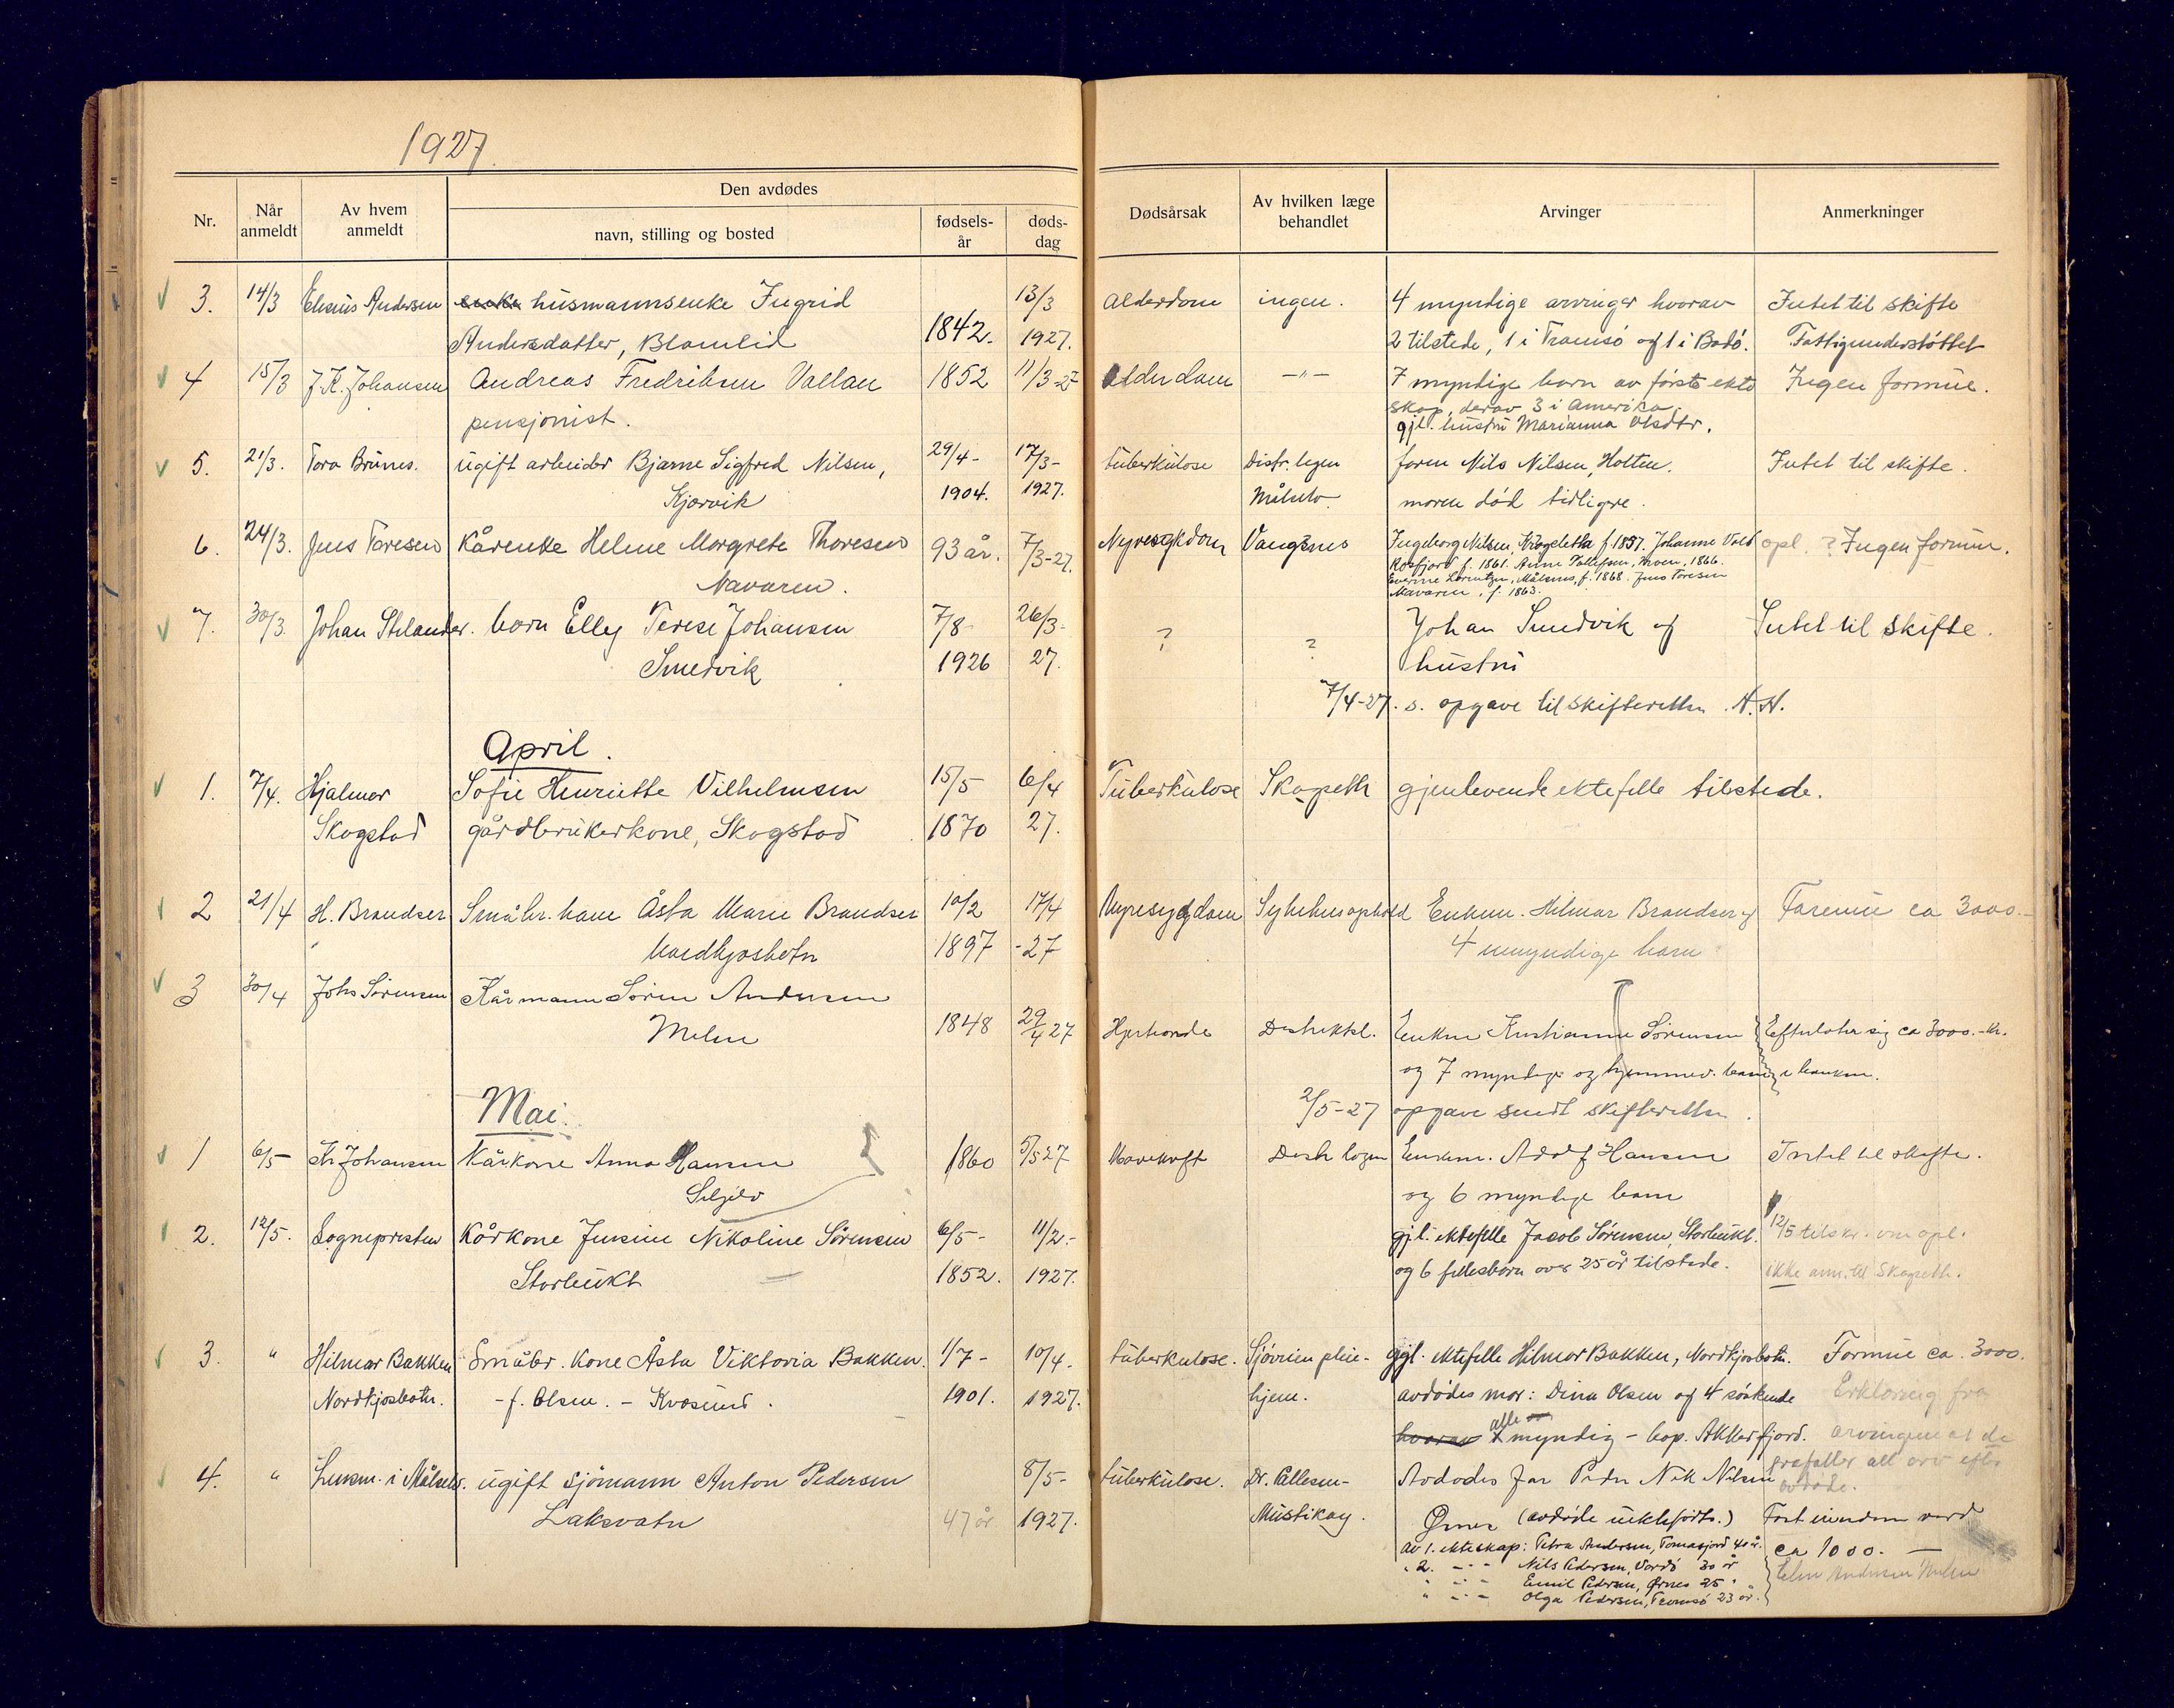 1927.
Den avdødes
Nr. Når anmeldt Av hvem anmeldt navn, stilling og bosted fødsels-år døds-dag Dødsårsak Av hvilken læge behandlet Arvinger Anmerkninger
3. 14/3 Elesius Andersen enke husmannsenke Ingrid 13/3 Alderdom ingen. 4 myndige arvinger hvorav Intet til skifte
Andersdatter, Blomlid 1842. 1927. 2 tilstede, 1 i Tromsø og 1 i Bodø. Fattigunderstøttet
4 15/3 J. K. Johansen Andreas Fredriksen Vollan 1852 11/3-27 Alderdom -"- 7 myndige barn av første ekte Ingen formue.
pensjonist. skap, derav 3 i Amerika.
gjl. hustru Marianna Olsdtr.
5. 21/3. Tora Brunes. ugift arbeider Bjarne Sigfred Nilsen, 29/4- 17/3- tuberkulose Distr. legen faren Nils Nilsen, Holten. Intet til skifte.
Kjærvik 1904. 1927. Målselv. moren død tidligere.
6. 24/3. Jens Toresen Kårenke Helene Morgrete Thoresen 93 år. 7/3-27. Nyresykdom Vangsnes Ingeborg Nilsen, f. 1857. Johanne opl. ? Ingen formue.
Navaren. Rossfjord f. 1861. Anne Tollefsen, Moen, 1866.
Lorentzen, Målsnes, f. 1868. Jens Toresen
Navaren, f. 1863.
7. 30/3. Johan Stelander. barn Elly Terese Johansen 7/8- 26/3- ? ? Johan Smedvik og Intet til skifte.
Smedvik 1926 27. hustru
7/4-27. s. opgave til skifteretten. A.H.
April.
1. 7/4. Hjalmar Sofie Henriette Vilhelmsen 15/5- 6/4 Tuberkulose Skogseth gjenlevende ektefelle tilstede.
Skogstad gårdbrukerkone, Skogstad 1870 27.
2 21/4 H. Brandser Småbr. kone Åsta Marie Brandser 10/2 17/4 Nyresygdom Sykehusophold Enkem. Hilmar Brandser og Formue ca 3000.-
Nordkjosbotn 1897 -27 4 umyndige barn
3 30/4 Johs Sørensen Kårmann Søren Andersen
Melen 1848 29/4 27 Hjerteonde Distriktsl. Enken Kristianne Sørensen Efterlater sig ca 3000.- kr.
og 7 myndige og hjemmev. barn i banken.
2/5-27 opgave sendt skifteretten.
Mai.
1 6/5 Kr Johansen Kårkone Anna Hansen 1860 5/5 27 Mavekreft Distr legen Enkem. Adolf Hansen Intet til skifte.
og 6 myndige barn
2. 12/5. Sognepresten Kårkone Jensine Nikoline Sørensen 6/5- 11/2.- gjl. ektefelle Jacob Sørensen, Storbukt. 12/5 tilskr. om opl.
Storbukt 1852. 1927. og 6 fellesbarn over 25 år tilstede. ikke anm. til Skogseth.
3. " Hilmar Bakken Småbr. kone Åsta Viktoria Bakken. 1/7- 10/4. tuberkulose. Sjøveien pleie- gjl. ektefelle Hilmar Bakken, Nordkjosbotn. Formue ca. 3000.
Nordkjosbotn. - f. Olsen. - Kvæsund. 1901. 1927. hjem. avdødes mor: Dina Olsen og 4 søskende Erklæring fra
hvorav alle myndig - bop. Akkarfjord. arvingene at de
frafaller all arv efter
avdøde.
4. " Lensm. i Målselv. ugift sjømann Anton Pedersen 8/5- tuberkulose. Dr. Pallesen- Avdødes far Peder Nik Nilsen
Laksvatn 47 år 1927. Mustikay. Ørnes (avdøde uektefødt.) Fast eiendom verd
Av 1. ekteskap: Petra Andersen, Tomasjord 40 år. ca 1000.-
" 2. -"- Nils Pedersen, Vardø 30 år
" -"- Emil Pedersen, Ørnes 25 "
" -"- Olga Pedersen, Tromsø 23 år.